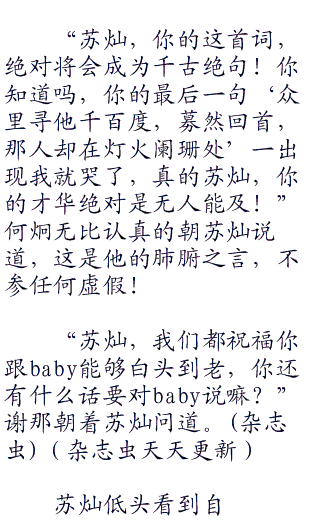 “苏灿，你的这首词，
绝对将会成为千古绝句！你
知道吗，你的最后一句‘众
里寻他千百度，蓦然回首，
那人却在灯火阑珊处’一出
现我就哭了，真的苏灿，你
的才华绝对是无人能及！”
何炯无比认真的朝苏灿说
道，这是他的肺腑之言，不
参任何虚假！
“苏灿，我们都祝福你
跟baby能够白头到老，你还
有什么话要对baby说嘛？”
谢那朝着苏灿问道。(杂志
虫)(杂志虫天天更新)
苏灿低头看到自